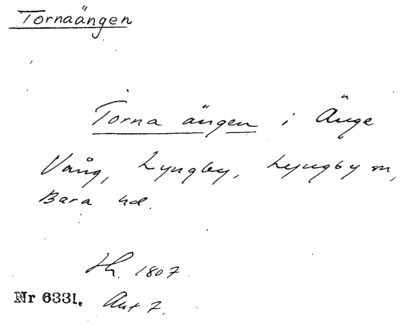 Tornaängen
Torna ängen i Änge
Vång, Lyngby, Lyngby sn,
Bara hd.
Sh. 1807
Nr 6331. Akt 7.